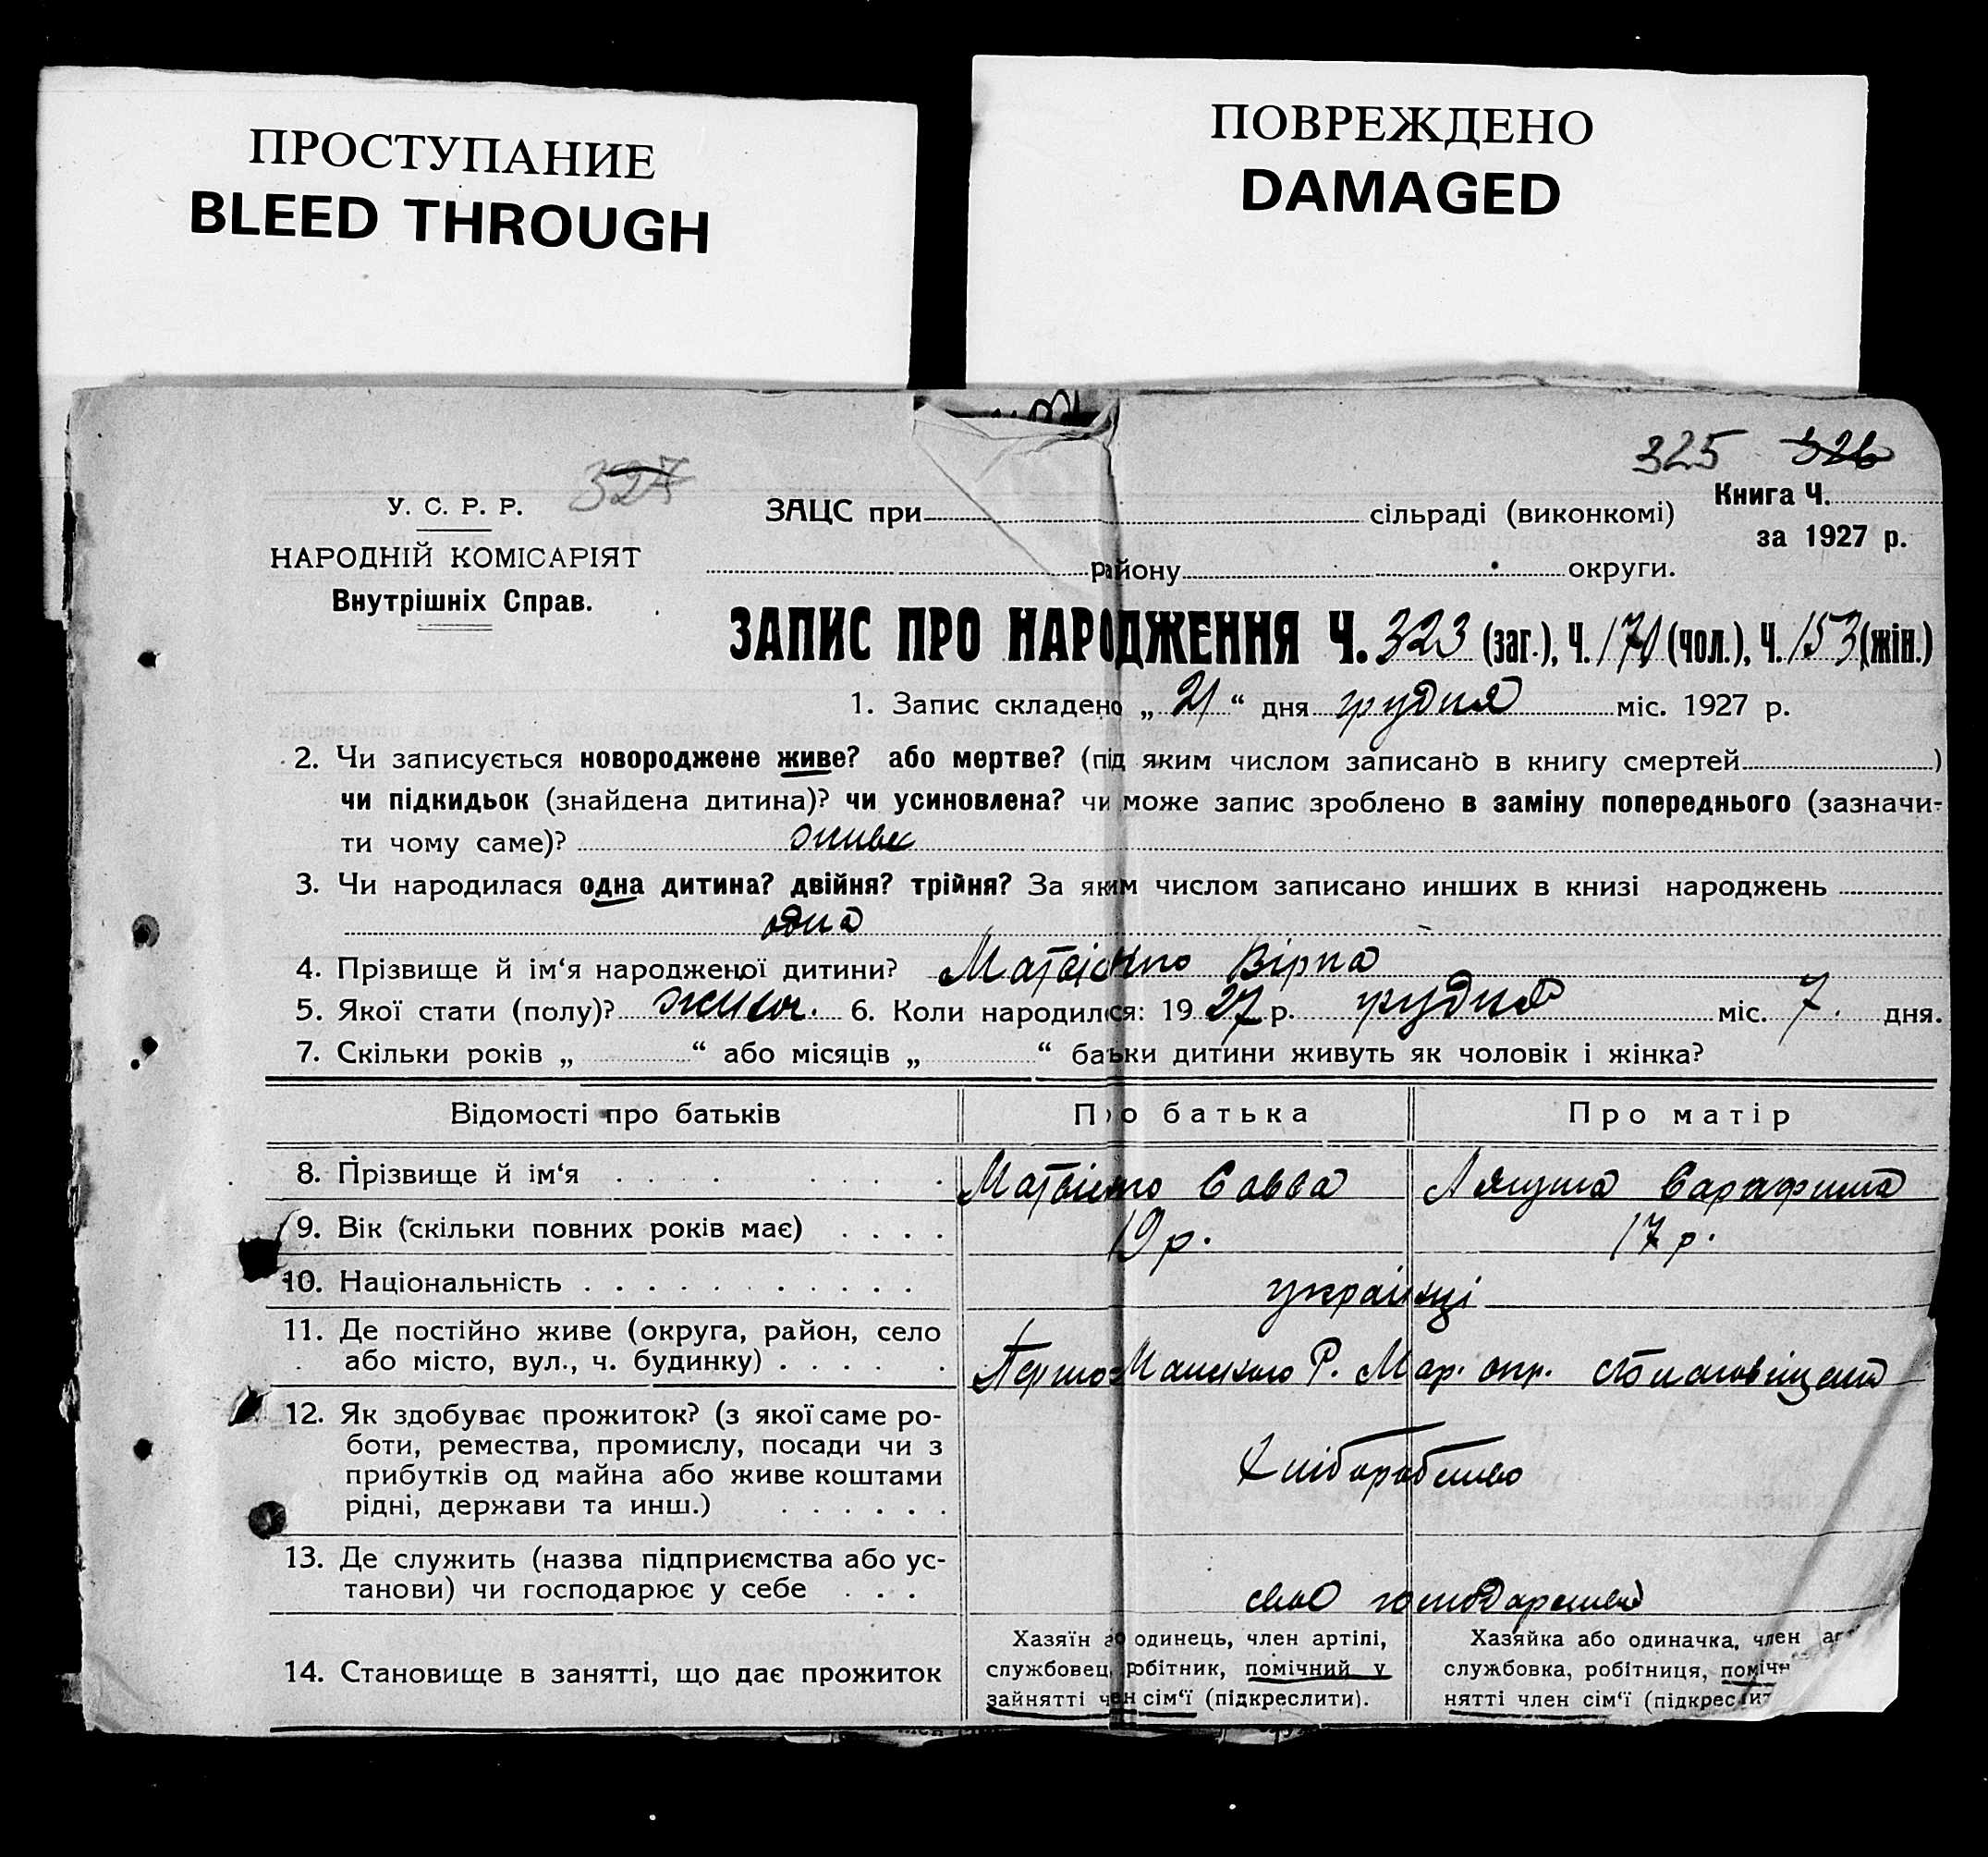 ПРОСТУПАНИЕ
BLEED THROUGH
ПОВРЕЖДЕНО
DAMAGED
325 326
327
У. С. Р. Р.
НАРОДНІЙ КОМІСАРІЯТ
Внутрішніх Справ.
ЗАЦС при сільраді (виконкомі)
Книга Ч.
за 1927 р.
району округи.
ЗАПИС ПРО НАРОДЖЕННЯ Ч. 323 (заг.), Ч. 170 (чол.), Ч. 153 (жін.)
1. Запис складено „ 21 “ дня грудня міс. 1927 р.
2. Чи записується новороджене живе? або мертве? (під яким числом записано в книгу смертей )
чи підкидьок (знайдена дитина)? чи усиновлена? чи може запис зроблено в заміну попереднього (зазначи-
ти чому саме)? живе
3. Чи народилася одна дитина? двійня? трійня? За яким числом записано инших в книзі народжень
одна
4. Прізвище й ім‘я народженої дитини? Матвієнко Вірка
5. Якої стати (полу)? жіноч. 6. Коли народилося: 19 27 р. грудня міс. 7. дня.
7. Скільки років „ “ або місяців „ “ батьки дитини живуть як чоловік і жінка?
Відомості про батьків Про батька Про матір
8. Прізвище й ім‘я . . . . Матвієнко Савва Ляшко Сарафина
9. Вік (скільки повних років має) . . . . 19 р. 17 р.
10. Національність . . . . українці
11. Де постійно живе (округа, район, село
або місто, вул., ч. будинку) . . . . Мар. окр.
12. Як здобуває прожиток? (з якої саме ро-
боти, ремества, промислу, посади чи з
прибутків од майна або живе коштами
рідні, держави та инш.) . . . . . .
Хліборобство
13. Де служить (назва підприємства або ус-
танови) чи господарює у себе . . .
своє
14. Становище в занятті, що дає прожиток
Хазяїн або одинець, член артілі,
службовець, робітник, помічний у
зайнятті член сім‘ї (підкреслити).
Хазяйка або одиначка, член арт
службовка, робітниця, помічн
нятті член сім‘ї (підкреслит